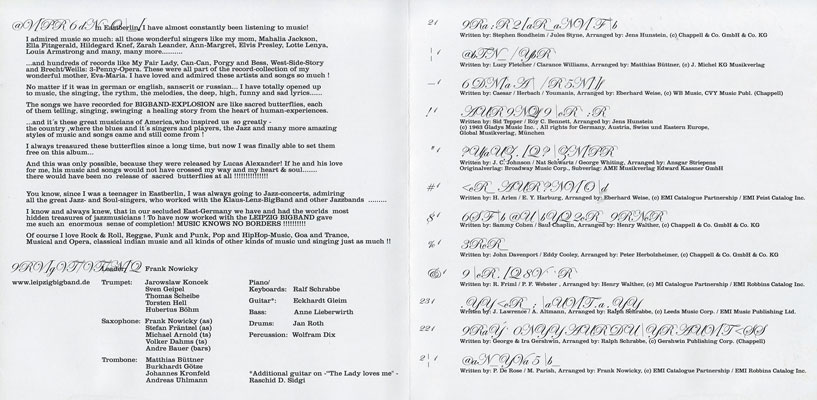 in Eastberlin, I have almost constantly been listening to music!
I admired music so much: all those wonderful singers like my mom, Mahalia Jackson,
Ella Fitzgerald, Hildegard Knef, Zarah Leander, Ann-Margret, Elvis Presley, Lotte Lenya,
Louis Armstrong and many, many more..........
...and hundreds of records like My Fair Lady, Can-Can, Porgy and Bess, West-Side-Story
and Brecht/Weills: 3-Penny-Opera. These were all part of the record-collection of my
wonderful mother, Eva-Maria. I have loved and admired these artists and songs so much !
No matter if it was in german or english, sanscrit or russian... I was totally opened up
to music, the singing, the rythm, the melodies, the deep, high, funny and sad lyrics......
The songs we have recorded for BIGBAND-EXPLOSION are like sacred butterflies, each
of them telling, singing, swinging a healing story from the heart of human-experiences.
...and it´s these great musicians of America,who inspired us so greatly -
the country ,where the blues and it´s singers and players, the Jazz and many more amazing
styles of music and songs came and still come from !
I always treasured these butterflies since a long time, but now I was finally able to set them
free on this album...
And this was only possible, because they were released by Lucas Alexander! If he and his love
for me, his music and songs would not have crossed my way and my heart & soul.......
there would have been no release of sacred butterflies at all !!!!!!!!!!!!!!!
You know, since I was a teenager in Eastberlin, I was always going to Jazz-concerts, admiring
all the great Jazz- and Soul-singers, who worked with the Klaus-Lenz-BigBand and other Jazzbands .........
I know and always knew, that in our secluded East-Germany we have and had the worlds most
hidden treasures of jazzmusicians ! To have now worked with the LEIPZIG BIGBAND gave
me such an enormous sense of completion! MUSIC KNOWS NO BORDERS !!!!!!!!!!
Of course I love Rock & Roll, Reggae, Funk and Punk, Pop and HipHop-Music, Goa and Trance,
Musical and Opera, classical indian music and all kinds of other kinds of music und singing just as much !!
Leader: Frank Nowicky
www.leipzigbigband.de
Trumpet: Jaroswlaw Koncek
Sven Geipel
Thomas Scheibe
Torsten Hell
Hubertus Böhm
Saxophone: Frank Nowicky (as)
Stefan Fräntzel (as)
Michael Arnold (ts)
Volker Dahms (ts)
Andre Bauer (bars)
Trombone: Matthias Büttner
Burkhardt Götze
Johannes Kronfeld
Andreas Uhlmann
Piano/
Keyboards: Ralf Schrabbe
Guitar*: Eckhardt Gleim
Bass: Anne Lieberwirth
Drums: Jan Roth
Percussion: Wolfram Dix
*Additional guitar on -"The Lady loves me" -
Raschid D. Sidgi
Written by: Stephen Sondheim / Jules Styne, Arranged by: Jens Hunstein, (c) Chappell & Co. GmbH & Co. KG
Written by: Lucy Fletcher / Clarance Williams, Arranged by: Matthias Büttner, (c) J. Michel KG Musikverlag
Written by: Caesar / Herbach / Youmanis, Arranged by: Eberhard Weise, (c) WB Music, CVY Music Publ. (Chappell)
Written by: Sid Tepper / Roy C. Bennett, Arranged by: Jens Hunstein
(c) 1963 Gladys Music Inc. , All rights for Germany, Austria, Swiss und Eastern Europe,
Global Musikverlag, München
Written by: J. C. Johnson / Nat Schwartz / George Whiting, Arranged by: Ansgar Striepens
Originalverlag: Broadway Music Corp., Subverlag: AME Musikverlag Edward Kassner GmbH
Written by: H. Arlen / E. Y. Harburg, Arranged by: Eberhard Weise, (c) EMI Catalogue Partnership / EMI Feist Catalog Inc.
Written by: Sammy Cohen / Saul Chaplin, Arranged by: Henry Walther, (c) Chappell & Co. GmbH & Co. KG
Written by: John Davenport / Eddy Cooley, Arranged by: Peter Herbolzheimer, (c) Chappell & Co. GmbH & Co. KG
Written by: R. Friml / P. F. Webster , Arranged by: Henry Walther, (c) MI Catalogue Partnership / EMI Robbins Catalog Inc.
Written by: J. Lawrence / A. Altmann, Arranged by: Ralph Schrabbe, (c) Leeds Music Corp. / EMI Music Publishing Ltd.
Written by: George & Ira Gershwin, Arranged by: Ralph Schrabbe, (c) Gershwin Publishing Corp. (Chappell)
Written by: P. De Rose / M. Parish, Arranged by: Frank Nowicky, (c) EMI Catalogue Partnership / EMI Robbins Catalog Inc.